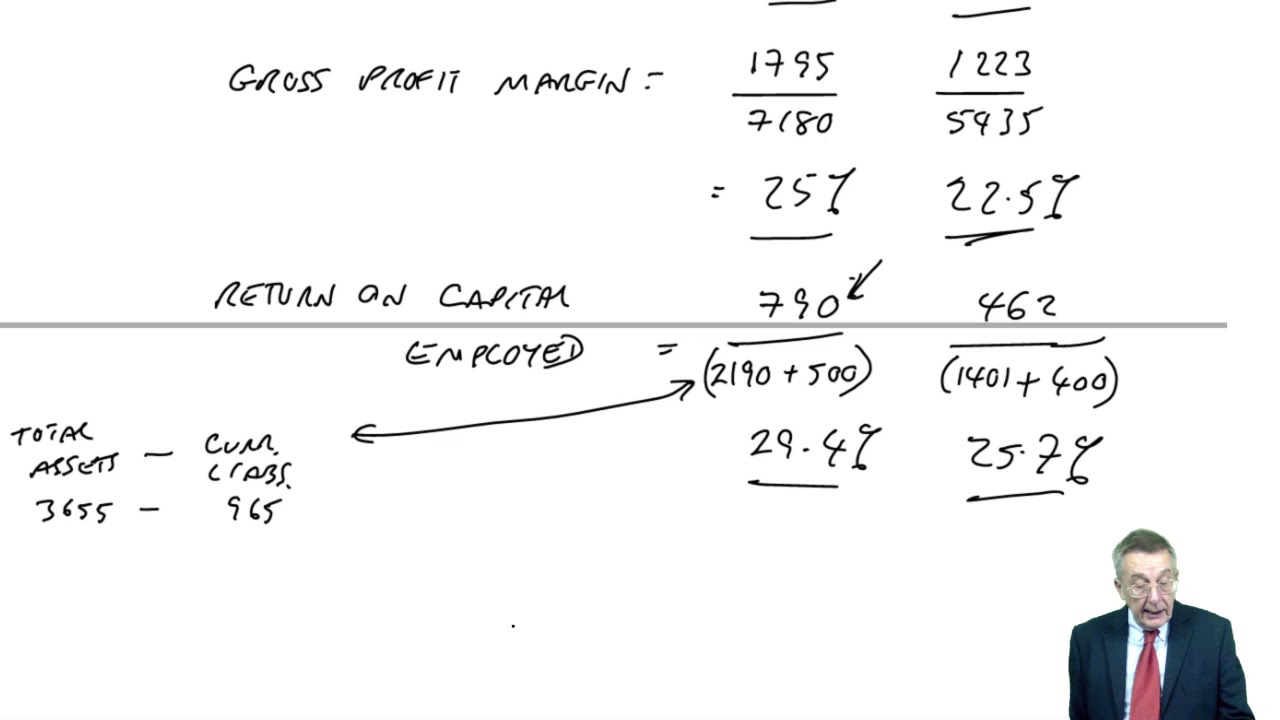 GROSS PROFIT MARGIN = 1795 1223
7180 5435
= 25% 22.5%
RETURN ON CAPITAL 790 462
EMPLOYED = (2190 + 500) (1401 + 400)
29.4% 25.7%
TOTAL ASSETS - CURR. LIABS.
3655 - 965